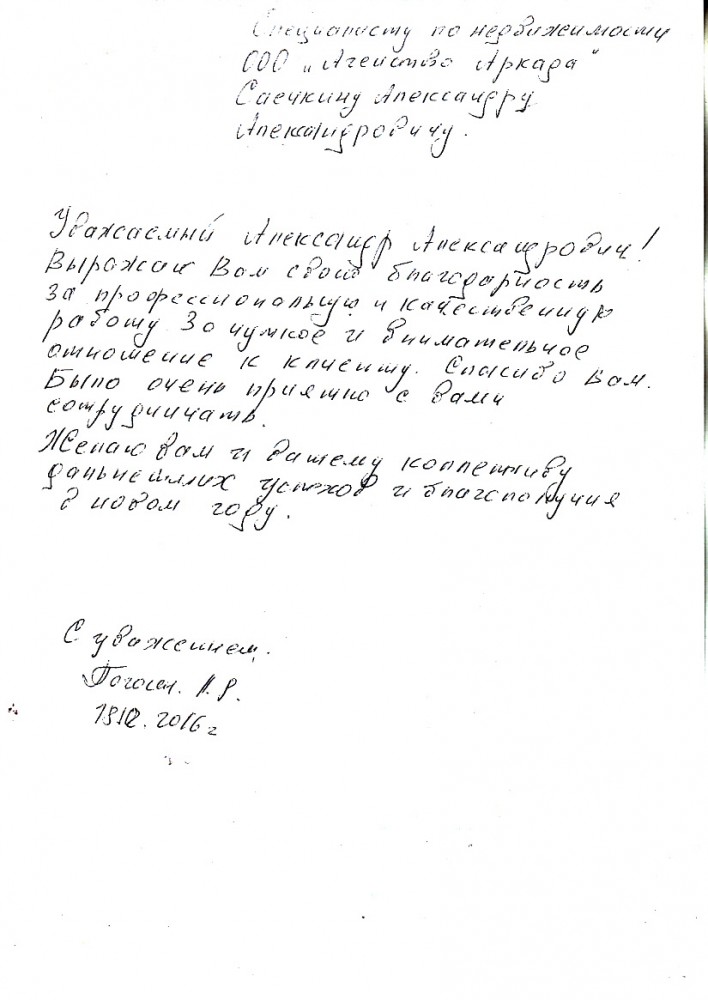 Специалисту по недвижимости
ООО „Агенство Аркада"
Саечкину Александру
Александровичу.
Уважаемый Александр Александрович!
Выражаю Вам свою благодарность
за профессиональную и качественную
работу за чуткое и внимательное
отношение к клиенту. Спасибо Вам.
Было очень приятно с вами
сотрудничать.
Желаю вам и вашему коллективу
дальнейших успехов и благополучия
в новом году.
С уважением.
2016г